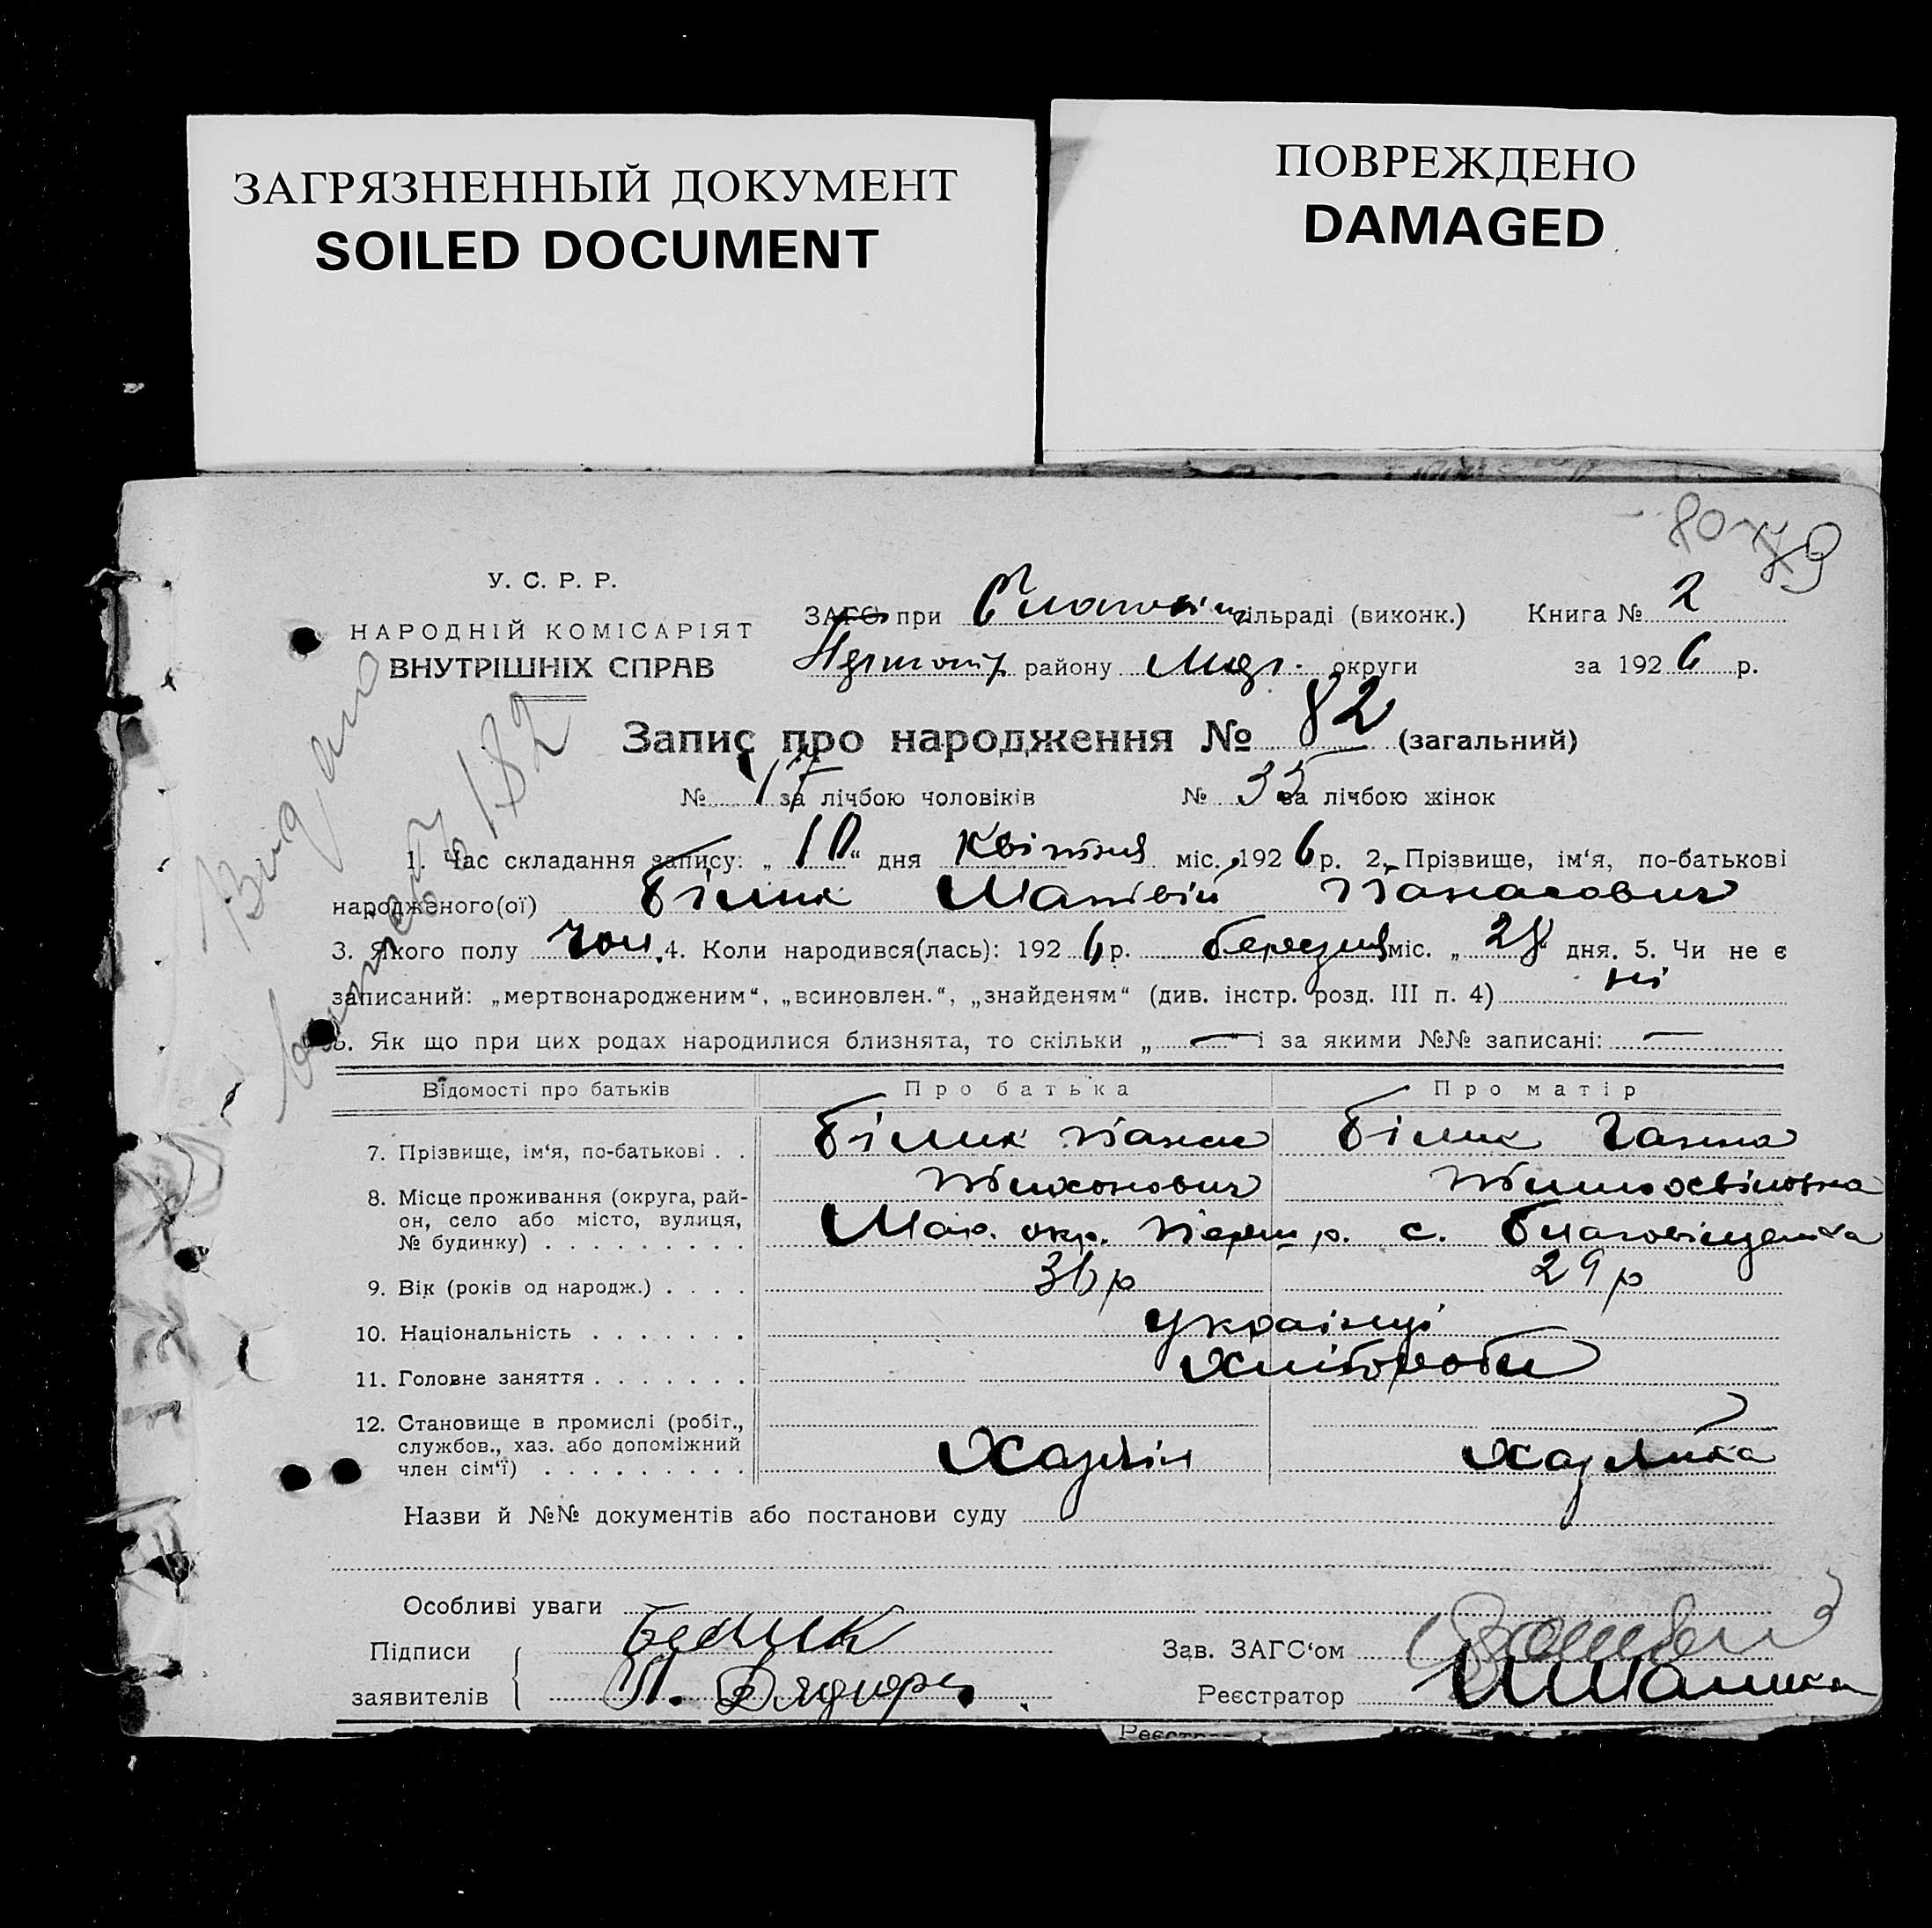 ЗАГРЯЗНЕННЫЙ ДОКУМЕНТ
SOILED DOCUMENT
ПОВРЕЖДЕНО
DAMAGED
80 79
У. С. Р. Р.
НАРОДНІЙ КОМІСАРІЯТ
ВНУТРІШНІХ СПРАВ
ЗАГС при сільраді (виконк.) Книга № 2
району округи за 1926 р.
Запис про народження № 82 (загальний)
№ 47 за лічбою чоловіків № 35 за лічбою жінок
1. Час складання запису: „10“ дня Квітня міс. 1926 р. 2. Прізвище, ім‘я, по-батькові
народженого(ої) Білик Матвій Панасович
3. Якого полу чол. 4. Коли народився(лась): 1926 р. березня міс. „28“ дня. 5. Чи не є
записаний: „мертвонародженим“, „всиновлен.“, „знайденям“ (див. інстр. розд. III п. 4) ні
6. Як що при цих родах народилися близнята, то скільки „—“ і за якими №№ записані: —
Відомості про батьків Про батька Про матір
7. Прізвище, ім‘я, по-батькові . . Білик Панас Білик Ганна
Тихонович
8. Місце проживання (округа, рай-
он, село або місто, вулиця,
№ будинку) . . . . . . . . . Мар. окр. Церт р. с. Благовіщенка
9. Вік (років од народж.) . . . . 36 р 29 р
10. Національність . . . . . . . українці
11. Головне заняття . . . . . . . Хлібороби
12. Становище в промислі (робіт.,
службов., хаз. або допоміжний
член сім‘ї) . . . . . . . . . Хазяїн Хазяйка
Назви й №№ документів або постанови суду
Особливі уваги
Підписи
заявителів
Білик
Зав. ЗАГС‘ом
Реєстратор